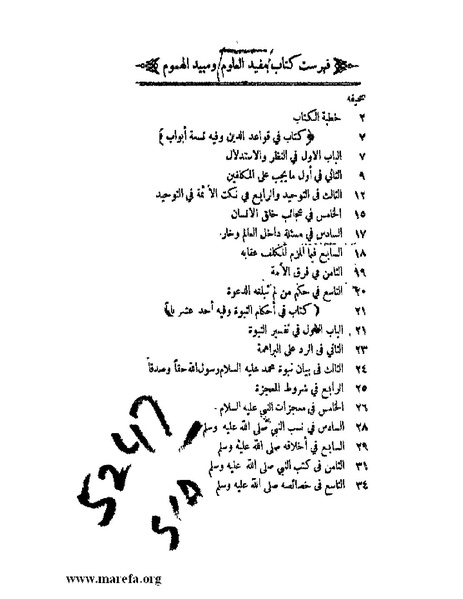 فهرست كتاب مفيد العلوم ومبيد الهموم
صحيفه
٢ خطبة الكتاب
٧ (كتاب في قواعد الدين وفيه تسعة أبواب)
٧ الباب الاول في النظر والاستدلال
٩ الثاني في أول ما يجب على المكلفين
١٢ الثالث في التوحيد والرابع في نكت الأئمة في التوحيد
١٥ الخامس في عجائب خلق الانسان
١٧ السادس في مسئلة داخل العالم وخارجه
١٨ السابع فيما يلزم المكلف عقابه
١٩ الثامن في فرق الأمة
٢٠ التاسع في حكم من لم تبلغه الدعوة
٢١ (كتاب في أحكام النبوة وفيه أحد عشر باباً)
٢١ الباب الاول في تفسير النبوة
٢٣ الثاني في الرد على البراهمة
٢٤ الثالث في بيان نبوة محمد عليه السلام رسول الله حقاً وصدقاً
٢٥ الرابع في شروط المعجزة
٢٦ الخامس في معجزات النبي عليه السلام
٢٨ السادس في نسب النبي صلى الله عليه وسلم
٢٩ السابع في أخلاقه صلى الله عليه وسلم
٣١ الثامن في كتب النبي صلى الله عليه وسلم
٣٤ التاسع في خصائصه صلى الله عليه وسلم
5247
www.marefa.org